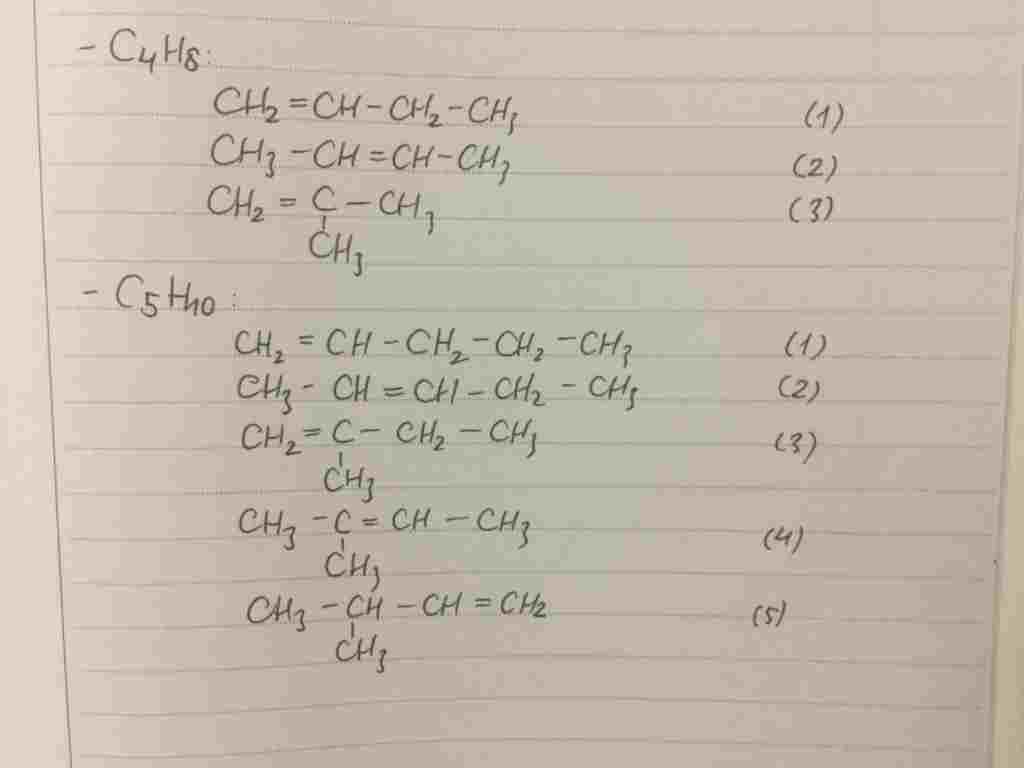 - C4H8:
CH2 = CH - CH2 - CH3 (1)
CH3 - CH = CH - CH3 (2)
CH2 = C - CH3 (3)
CH3
- C5H10:
CH2 = CH - CH2 - CH2 - CH3 (1)
CH3 - CH = CH - CH2 - CH3 (2)
CH2 = C - CH2 - CH3 (3)
CH3
CH3 - C = CH - CH3 (4)
CH3
CH3 - CH - CH = CH2 (5)
CH3